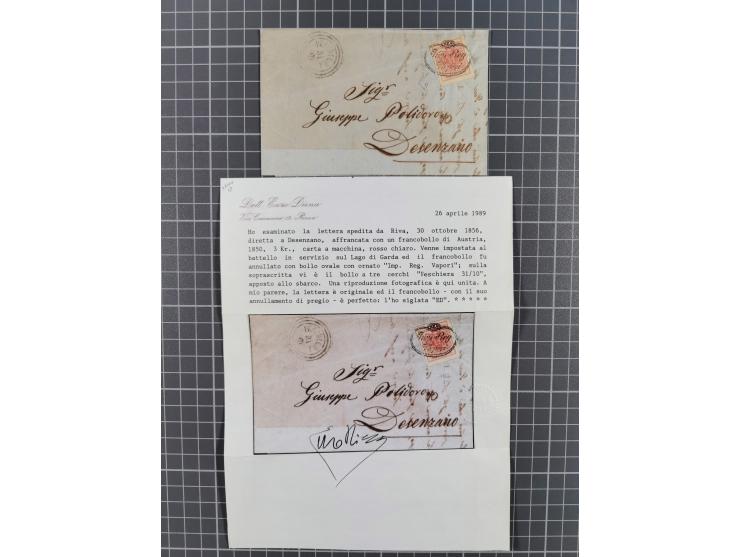 Sigr
Giuseppe Polidoro
Desenzano
Dott. Enzo Diena
26 aprile 1989
Ho esaminato la lettera spedita da Riva, 30 ottobre 1856,
diretta a Desenzano, affrancata con un francobollo di Austria,
1850, 3 Kr., carta a macchina, rosso chiaro. Venne impostata al
battello in servizio sul Lago di Garda ed il francobollo fu
annullato con bollo ovale con ornato "Imp. Reg. Vapori"; sulla
soprascritta vi è il bollo a tre cerchi "Peschiera 31/10",
apposto allo sbarco. Una riproduzione fotografica è qui unita. A
mio parere, la lettera è originale ed il francobollo - con il suo
annullamento di pregio - è perfetto: l'ho siglata "ED". * * * * *
Sigr
Giuseppe Polidoro
Desenzano